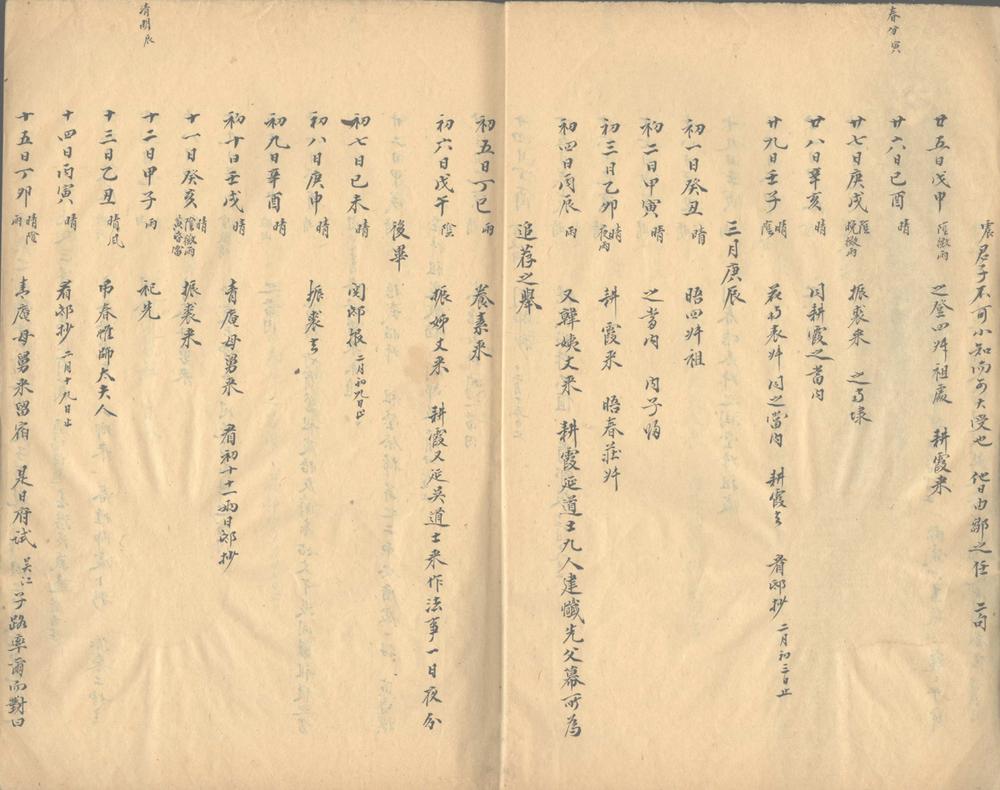 春分寅
震 君子不可小知而可大受也 他日由鄒之任 二句
廿五日戊申 陰微雨 之登四叔祖處 耕霞來
廿六日己酉 晴
廿七日庚戌 陰晚微雨 振裘來 之
廿八日辛亥 晴 同耕霞之當內
廿九日壬子 晴陰 叔同之當內 耕霞去 看邸抄 二月初三日止
三月庚辰
初一日癸丑 晴 晤四叔祖
初二日甲寅 晴 之當內 內子
初三日乙卯 晴夜雨 耕霞來 晤春莊叔
初四日丙辰 雨 又韓姨丈來 耕霞延道士九人建懺先父幕所為
追荐之舉
初五日丁巳 雨 養素來
初六日戊午 陰 振姊丈來 耕霞又延吳道士來作法事一日夜分
後畢
初七日己未 晴 閱邸報 二月初九日止
初八日庚申 晴 振裘去
初九日辛酉 晴
初十日壬戌 晴 青庵母舅來 看初十十一兩日邸抄
十一日癸亥 晴陰微雨黃昏雷 振裘來
十二日甲子 雨 祀先
十三日乙丑 晴風 弔春帷師太夫人
十四日丙寅 晴 看邸抄 二月十九日止
清明辰
十五日丁卯 晴陰雨 青庵母舅來留宿 是日府試 吳江 子路率爾而對曰